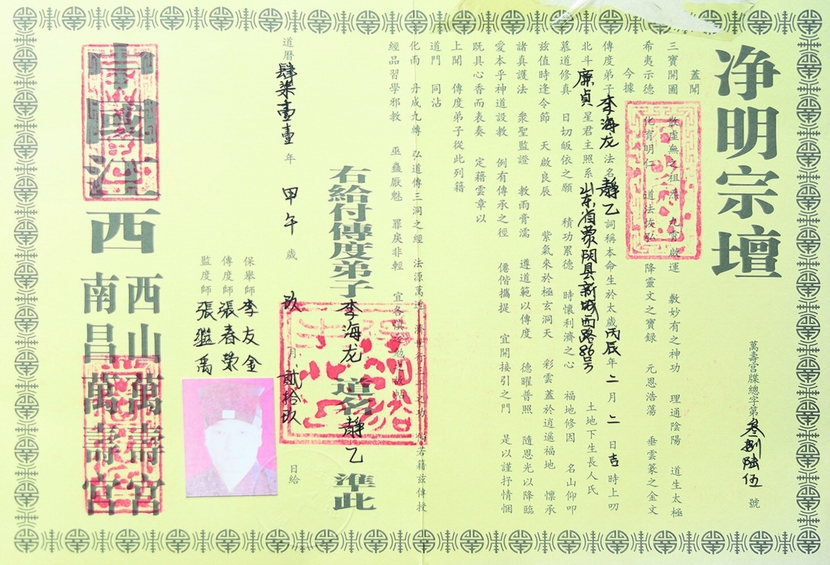 净明宗壇
萬壽宮牒總字第叁捌陆伍號
蓋聞
三寶開圖 散虛無之祖炁 九霄啟運 數妙有之神功 理通陰陽 道生太極
希夷示德 化育明仁 道法恢弘 降靈文之寶録 元恩浩蕩 垂雲篆之金文
今據
傳度弟子李海龙法名静乙詞稱本命生於太歲丙辰年二月二日吉時上叩
北斗廉貞星君主照系山东省蒙阴县新城西路86号 土地下生長人氏
慕道修真 日切皈依之願 積功累德 時懷利濟之心 福地修因 名山仰叩
兹值時逢令節 天啟良辰 紫氣來於極玄洞天 彩雲蓋於逍遙福地 懷承
諸真護法 衆聖監證 教雨膏濡 遵道範以傳度 德曜普照 隨恩光以降臨
爰本乎神道設教 例有傳承之徑 僊偕攜提 宜開接引之門 是以謹抒情悃
既具心香而表奏 定籍雲章以
上聞 傳度弟子從此列籍
道門 同沾
化雨 丹成九轉 弘道傳三洞之經 法源萬
經品習學邪教 巫蠱厭魁 罪戾非輕 宜各
若籍兹傳授
右給付傳度弟子李海龙 道名静乙 準此
道曆肆柒壹壹年 甲午歲 玖月贰拾玖日給
保舉師 李友金
傳度師 張春荣
監度師 張继禹
中國江西
西山萬壽宮
南昌萬壽宮